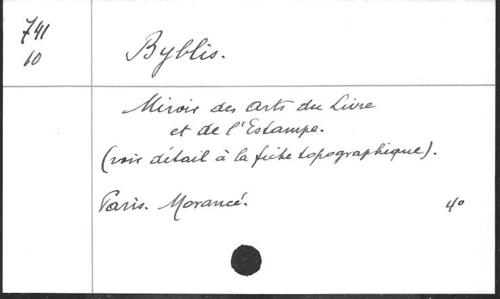 741
10
Byblis.
Miroir des Arts du Livre
et de l'Estampe.
(voir détail à la fiche topographique).
Paris. Morancé.
4º